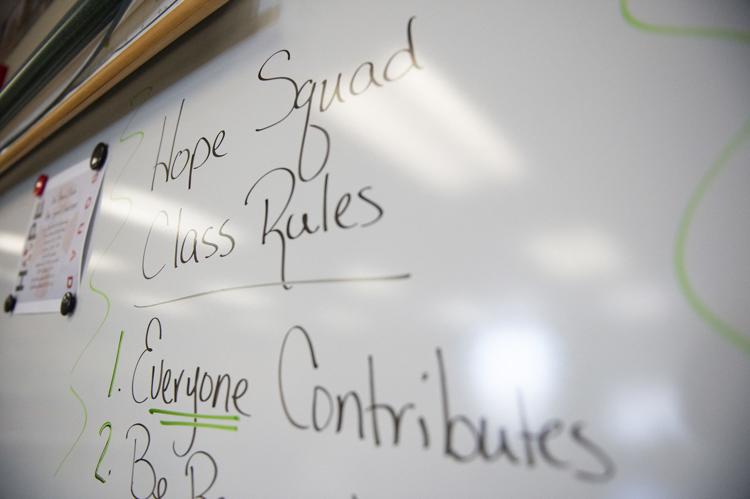 Hope Squad
Class Rules
1. Everyone Contributes
2. Be